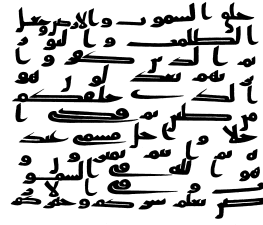 خلق السموت والارض وجعل
الظلمت والنور
ثم الذين كفروا
بربهم يعدلون هو
الذي خلقكم
من طين ثم قضى ا
جلا واجل مسمى عند
ه ثم انتم تمترون و
هو الله في السمو
ت وفي الا
رض يعلم سركم وجهركم